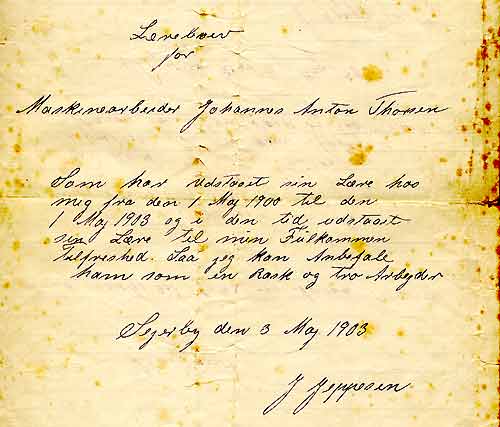 Lærebrev
for
Maskinearbeider Johannes Anton Thorsen
Som har udstaaet sin Lære hos
meg fra den 1 Maj 1900 til den
1 Maj 1903 og i den tid udstaaet
sin Lære til min Fulkommen
tilfreshed. Saa jeg kan Anbefale
ham som en Rask og tro Arbejder
Sejerby den 3 Maj 1903
J Jeppesen